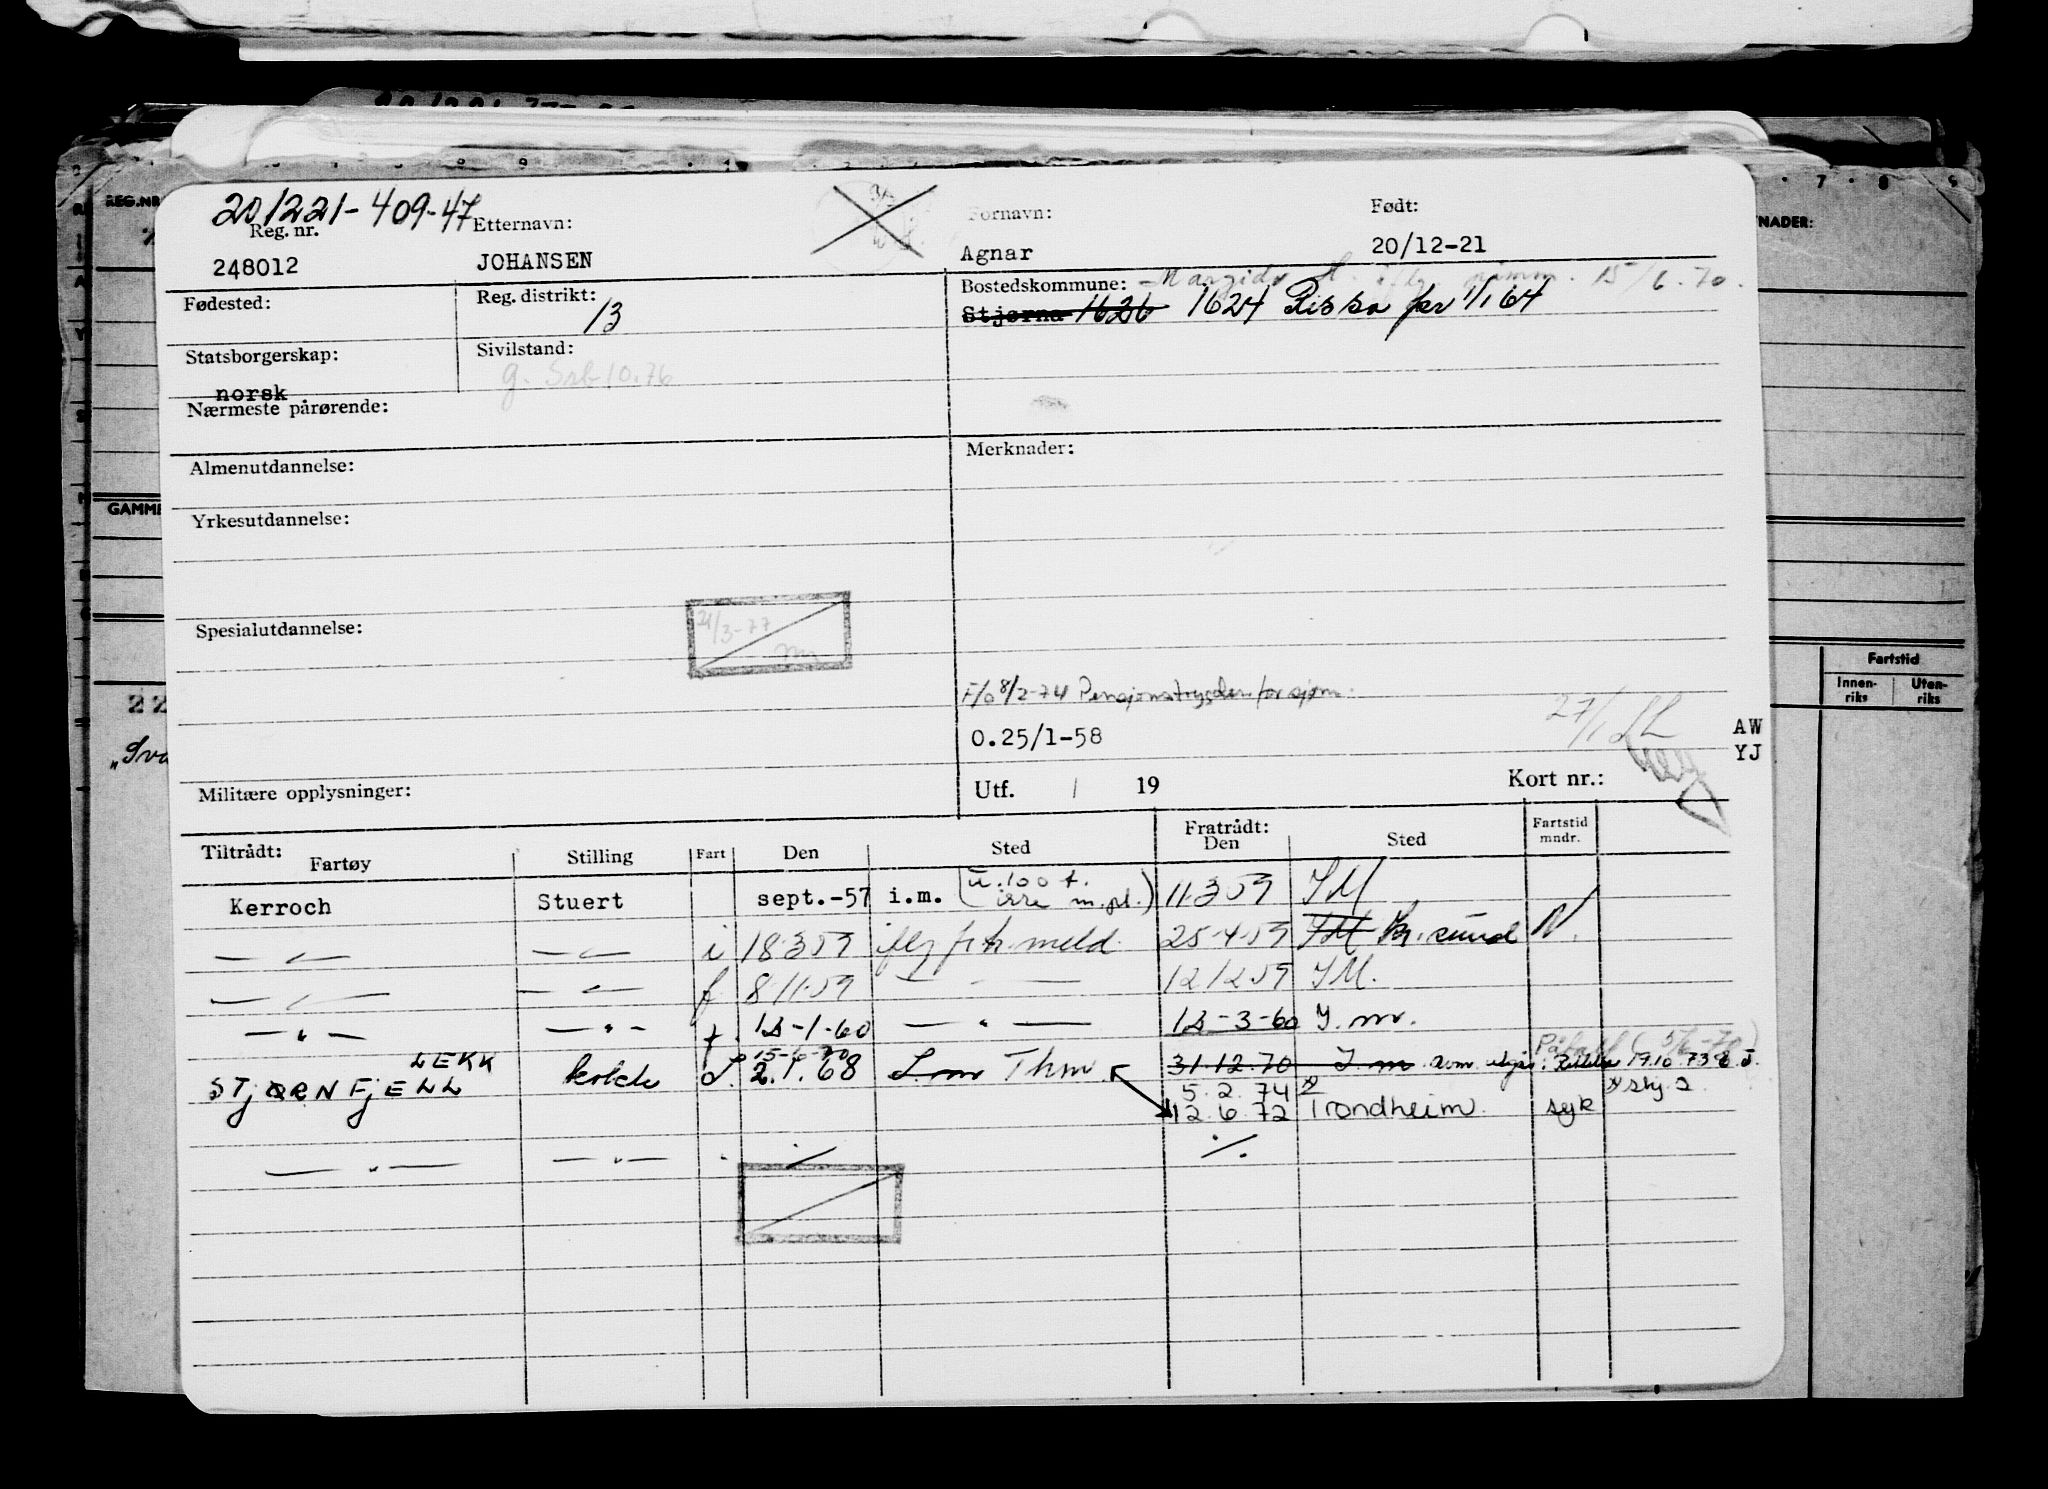 201221-409-47
Reg. nr. Etternavn: Fornavn: Født:
248012 JOHANSEN Agnar 20/12-21
Fødested: Reg. distrikt: 13 Bostedskommune: 15/6.70.
Stjørna 1626 1624 Rissa per 1/1 64
Statsborgerskap: Sivilstand:
norsk g. 10.76
Nærmeste pårørende:
Almenutdannelse: Merknader:
Yrkesutdannelse:
21/3-77
Spesialutdannelse:
F/o 8/2-74 Pensjonstrygden for sjøm.
0.25/1-58 27/1 AW
YJ
Militære opplysninger: Utf. / 19 Kort nr.:
Tiltrådt: Fratrådt: Fartstid
Fartøy Stilling Fart Den Sted Den Sted mndr.
Kerroch Stuert sept.-57 i.m. (u.100 t. m.pl.) 11.3 59 IM
— " — — " — i 18.3 59 iflg meld. 25.4.59 IM Kr.sund N.
— " — — " — f 8.11.59 — " — 12.12.59 IM.
— " — — " — f. 12-1-60 — " — 12-3-60 I.m.
LEKK 15-6-70
STJØRNFJELL kokk 2.1.68 I.m Thm 31.12.70 I.m som 1910 73
5.2.74
12.6.72 Trondheim. syk
— " — — " — ·/. ·/.
REG.NR
GAMME
NADER:
Fartstid
Innen-riks Uten-riks
22